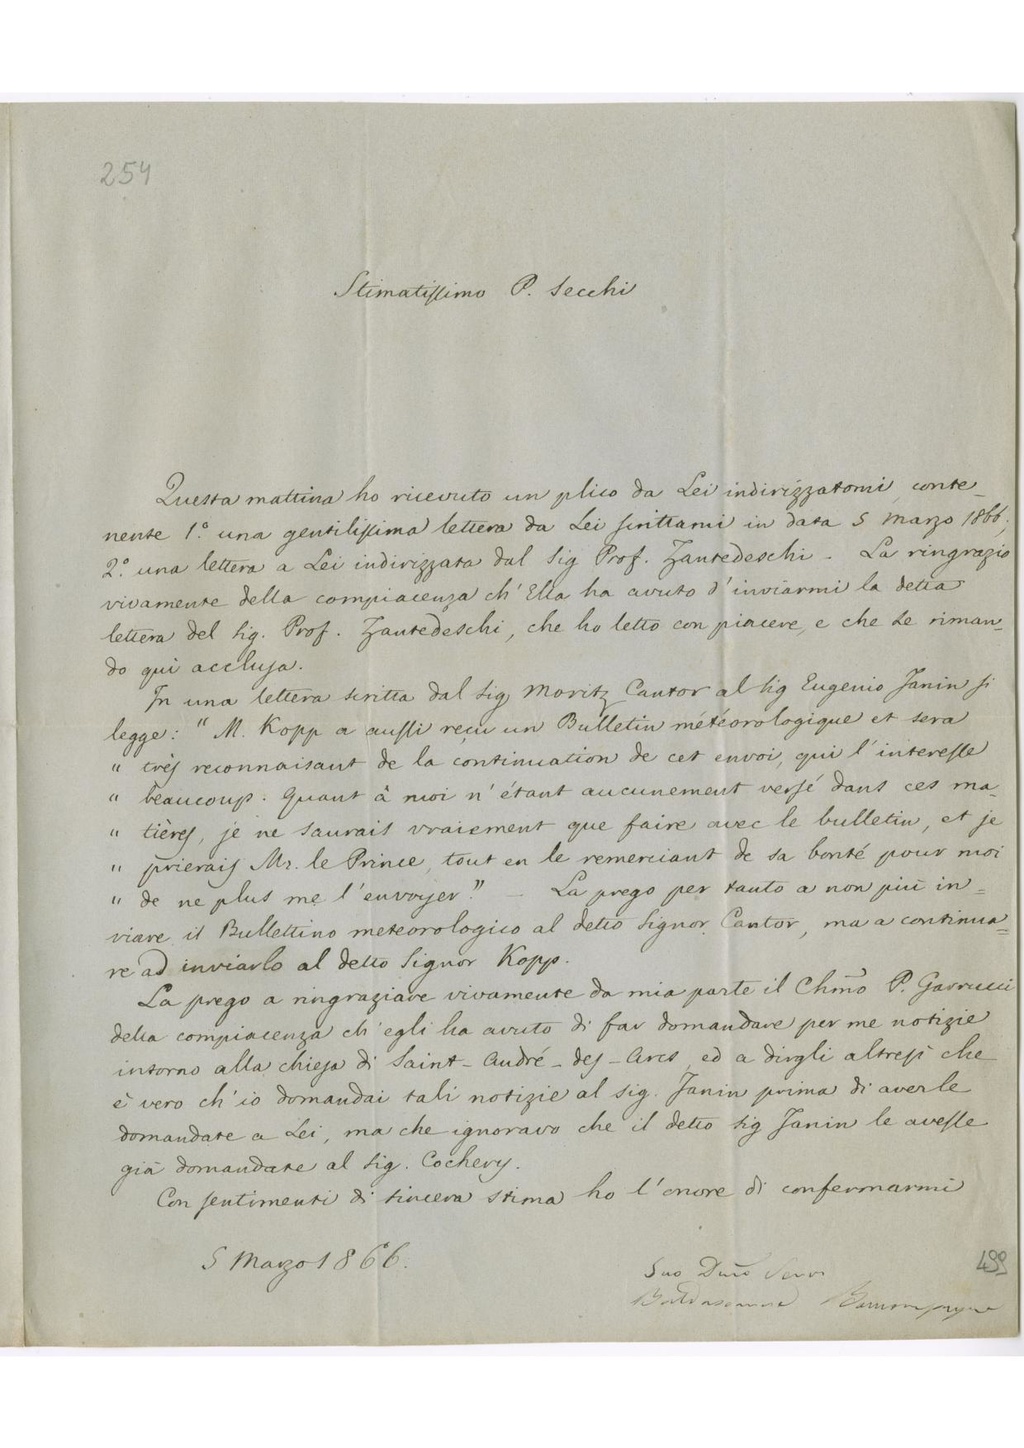 254
Stimatissimo P. Secchi
Questa mattina ho ricevuto un plico da Lei indirizzatomi, conte-
nente 1.° una gentilissima lettera da Lei scrittami in data 5 marzo 1866,
2.° una lettera a Lei indirizzata dal Sig Prof. Zantedeschi. La ringrazio
vivamente della compiacenza ch'Ella ha avuto d'inviarmi la detta
lettera del Sig. Prof. Zantedeschi, che ho letto con piacere, e che Le riman-
do qui acclusa.
In una lettera scritta dal Sig Moritz Cantor al Sig Eugenio Janin si
legge: "M. Kopp a aussi reçu un Bulletin météorologique et sera
" très reconnaisant de la continuation de cet envoi, qui l'interesse
" beaucoup. Quant à moi n'étant aucunement versé dans ces ma-
" tières, je ne saurais vraiement que faire avec le bulletin, et je
" prierais Mr. le Prince, tout en le remerciant de sa bonté pour moi
" de ne plus me l'envoyer." — La prego per tanto a non più in-
viare il Bullettino meteorologico al detto Signor Cantor, ma a continua-
re ad inviarlo al detto Signor Kopp.
La prego a ringraziare vivamente da mia parte il Chmo P. Garrucci
della compiacenza ch'egli ha avuto di far domandare per me notizie
intorno alla chiesa di Saint-André-des-Arcs, ed a dirgli altresì che
è vero ch'io domandai tali notizie al sig. Janin prima di averle
domandate a Lei, ma che ignoravo che il detto sig Janin le avesse
già domandate al Sig. Cochery.
Con sentimenti di sincera stima ho l'onore di confermarmi
5 Marzo 1866.
Suo Dmo Servo
Baldassarre Boncompagni
499